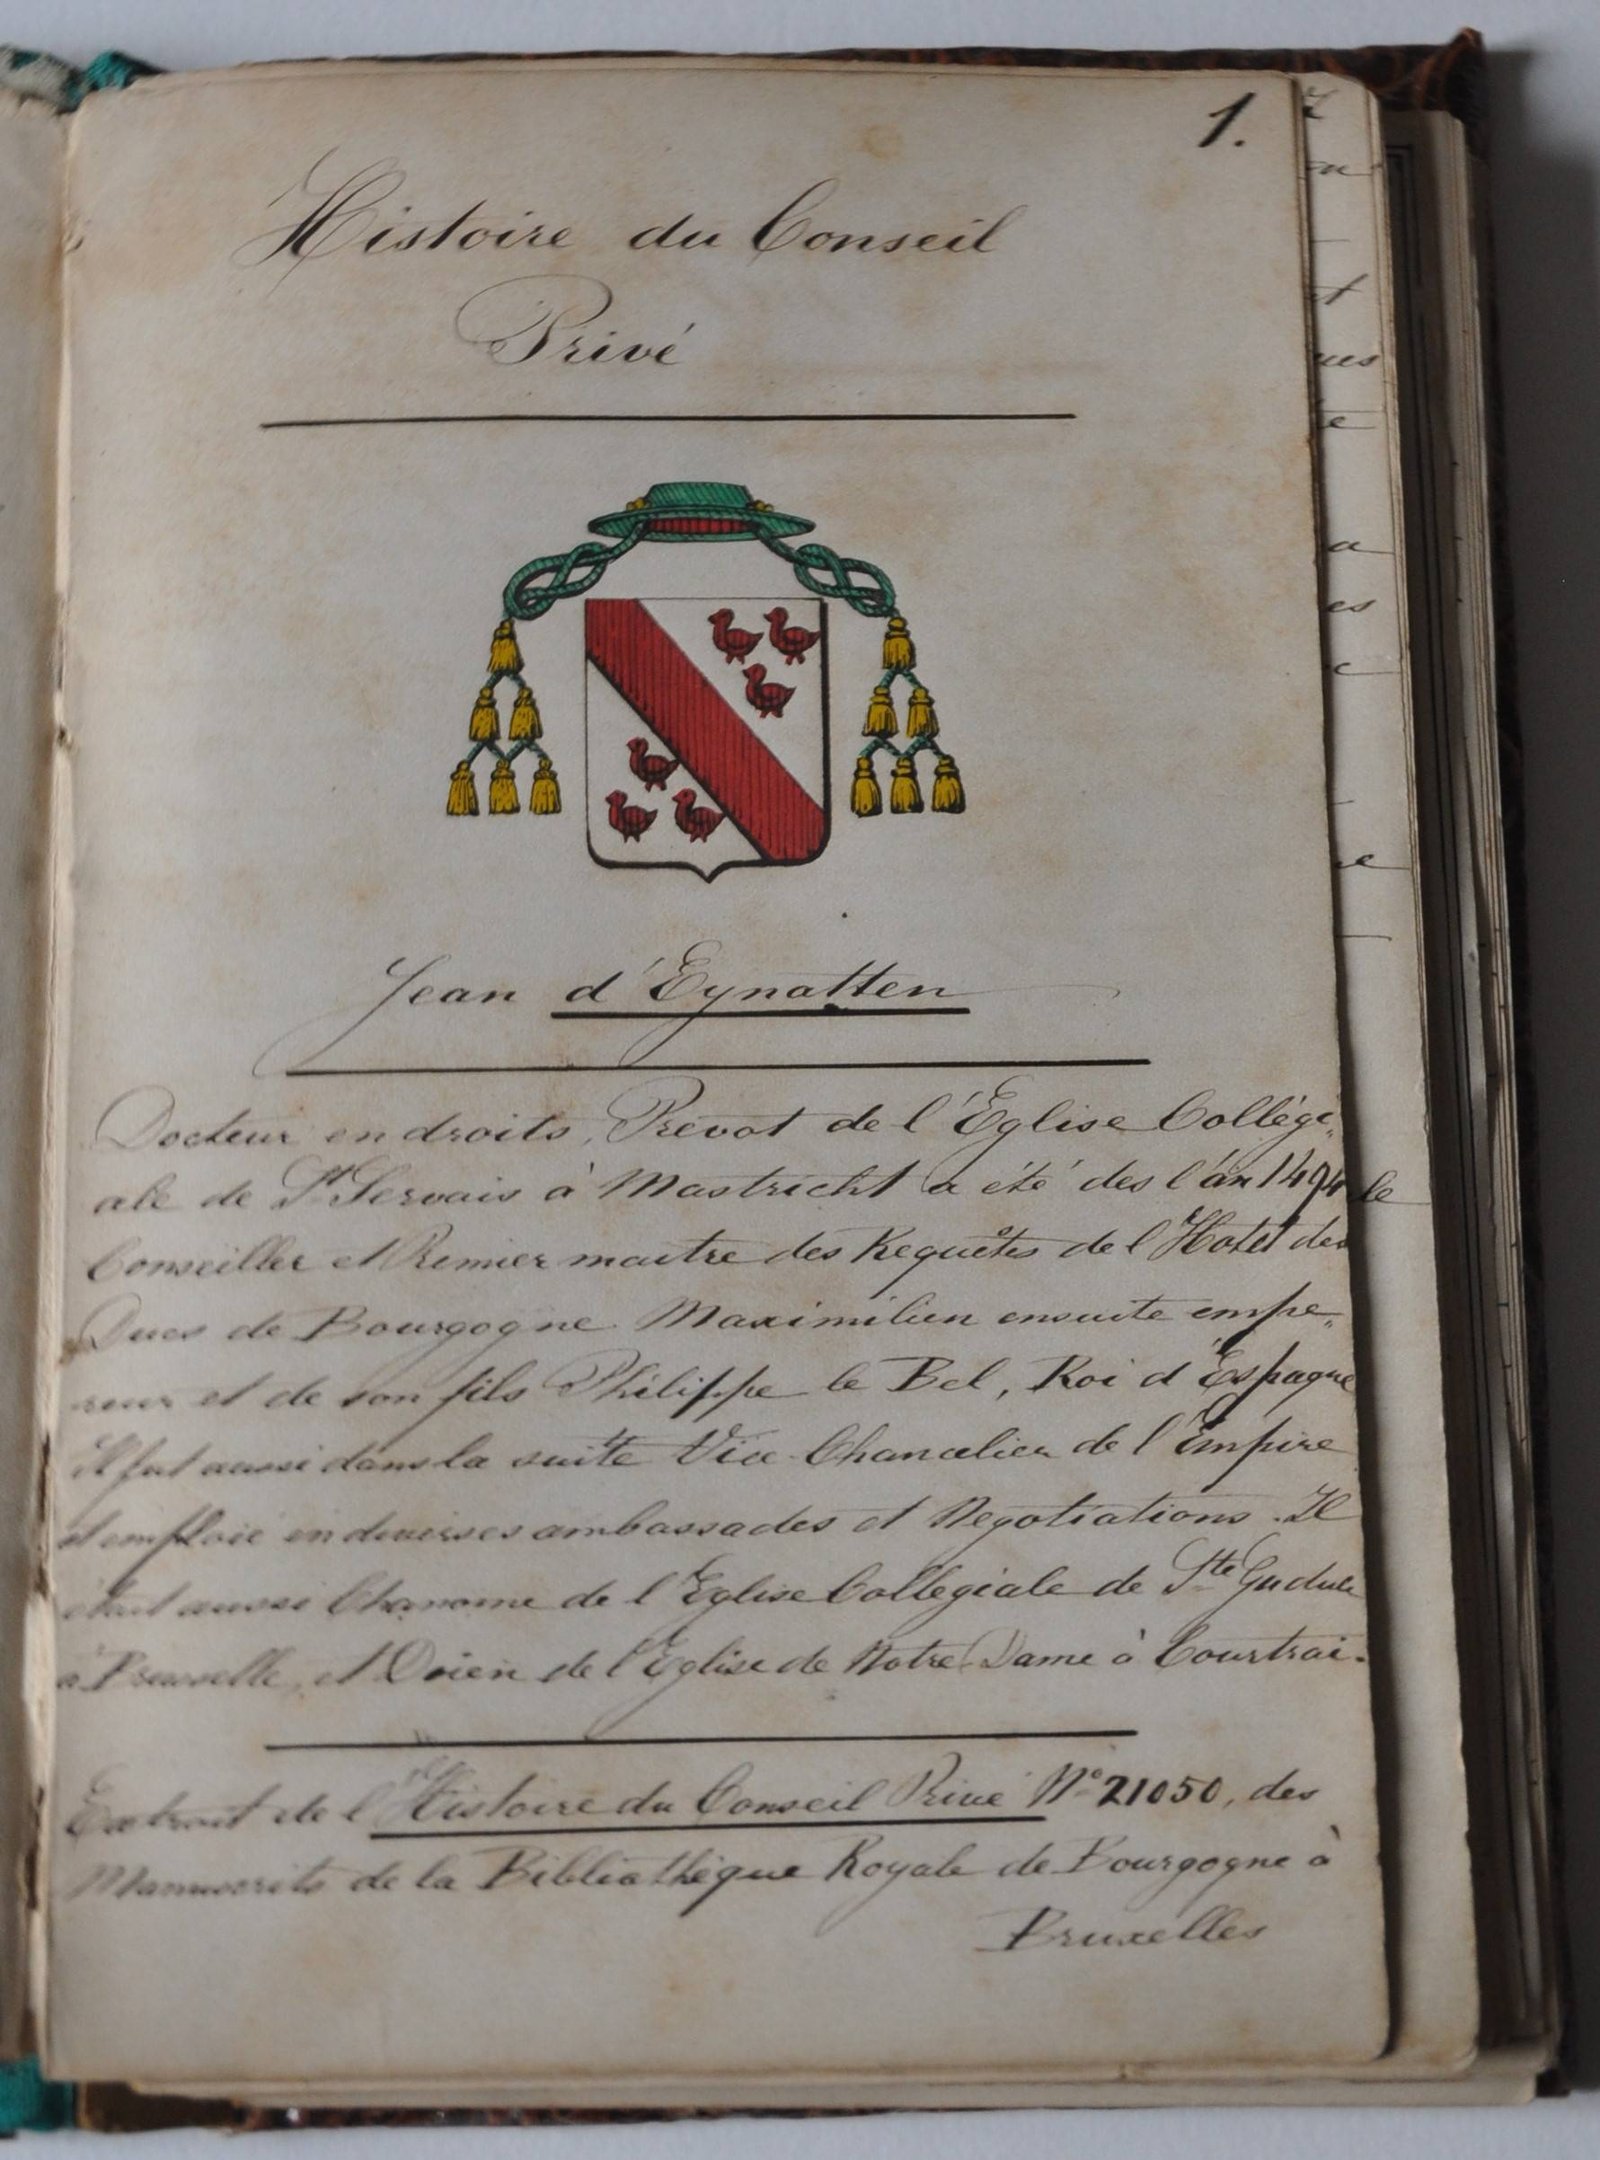 1.
Histoire du Conseil
Privé
Jean d'Eynatten
Docteur en droits, Prevot de l'Eglise Collégi„
ale de St Servais à Mastricht a été des l'an 1494 le
Conseiller et Premier maitre des Requêtes de l'Hotel des
Ducs de Bourgogne Maximilien ensuite empe„
reur et de son fils Philippe le Bel, Roi d'Espagne
Il fut aussi dans la suite Vice-Chancelier de l'Empire
et emploié en diverses ambassades et Negotiations. Il
était aussi Chanoine de l'Eglise Collegiale de Ste Gudule
à Bruxelle, et Doien de l'Eglise de Notre Dame à Courtrai.
Extrait de l'Histoire du Conseil Privé N° 21050, des
Manuscrits de la Bibliothèque Royale de Bourgogne à
Bruxelles